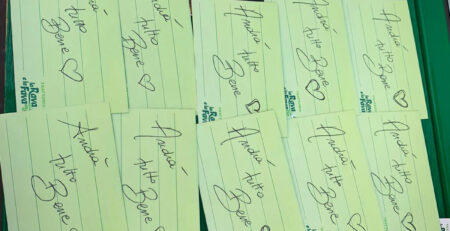 tutto
Bene
la Rava
e la Fava
Andrà
tutto
Bene
la Rava
e la Fava
Andrà
tutto
Bene
Andrà
tutto
Bene
la Rava
e la Fava
Andrà
tutto
Bene
la Rava
e la Fava
Andrà
tutto
Bene
Andrà
tutto
Bene
Andrà
tutto
Bene
Andrà
tutto
Bene
Andrà
tutto
Bene